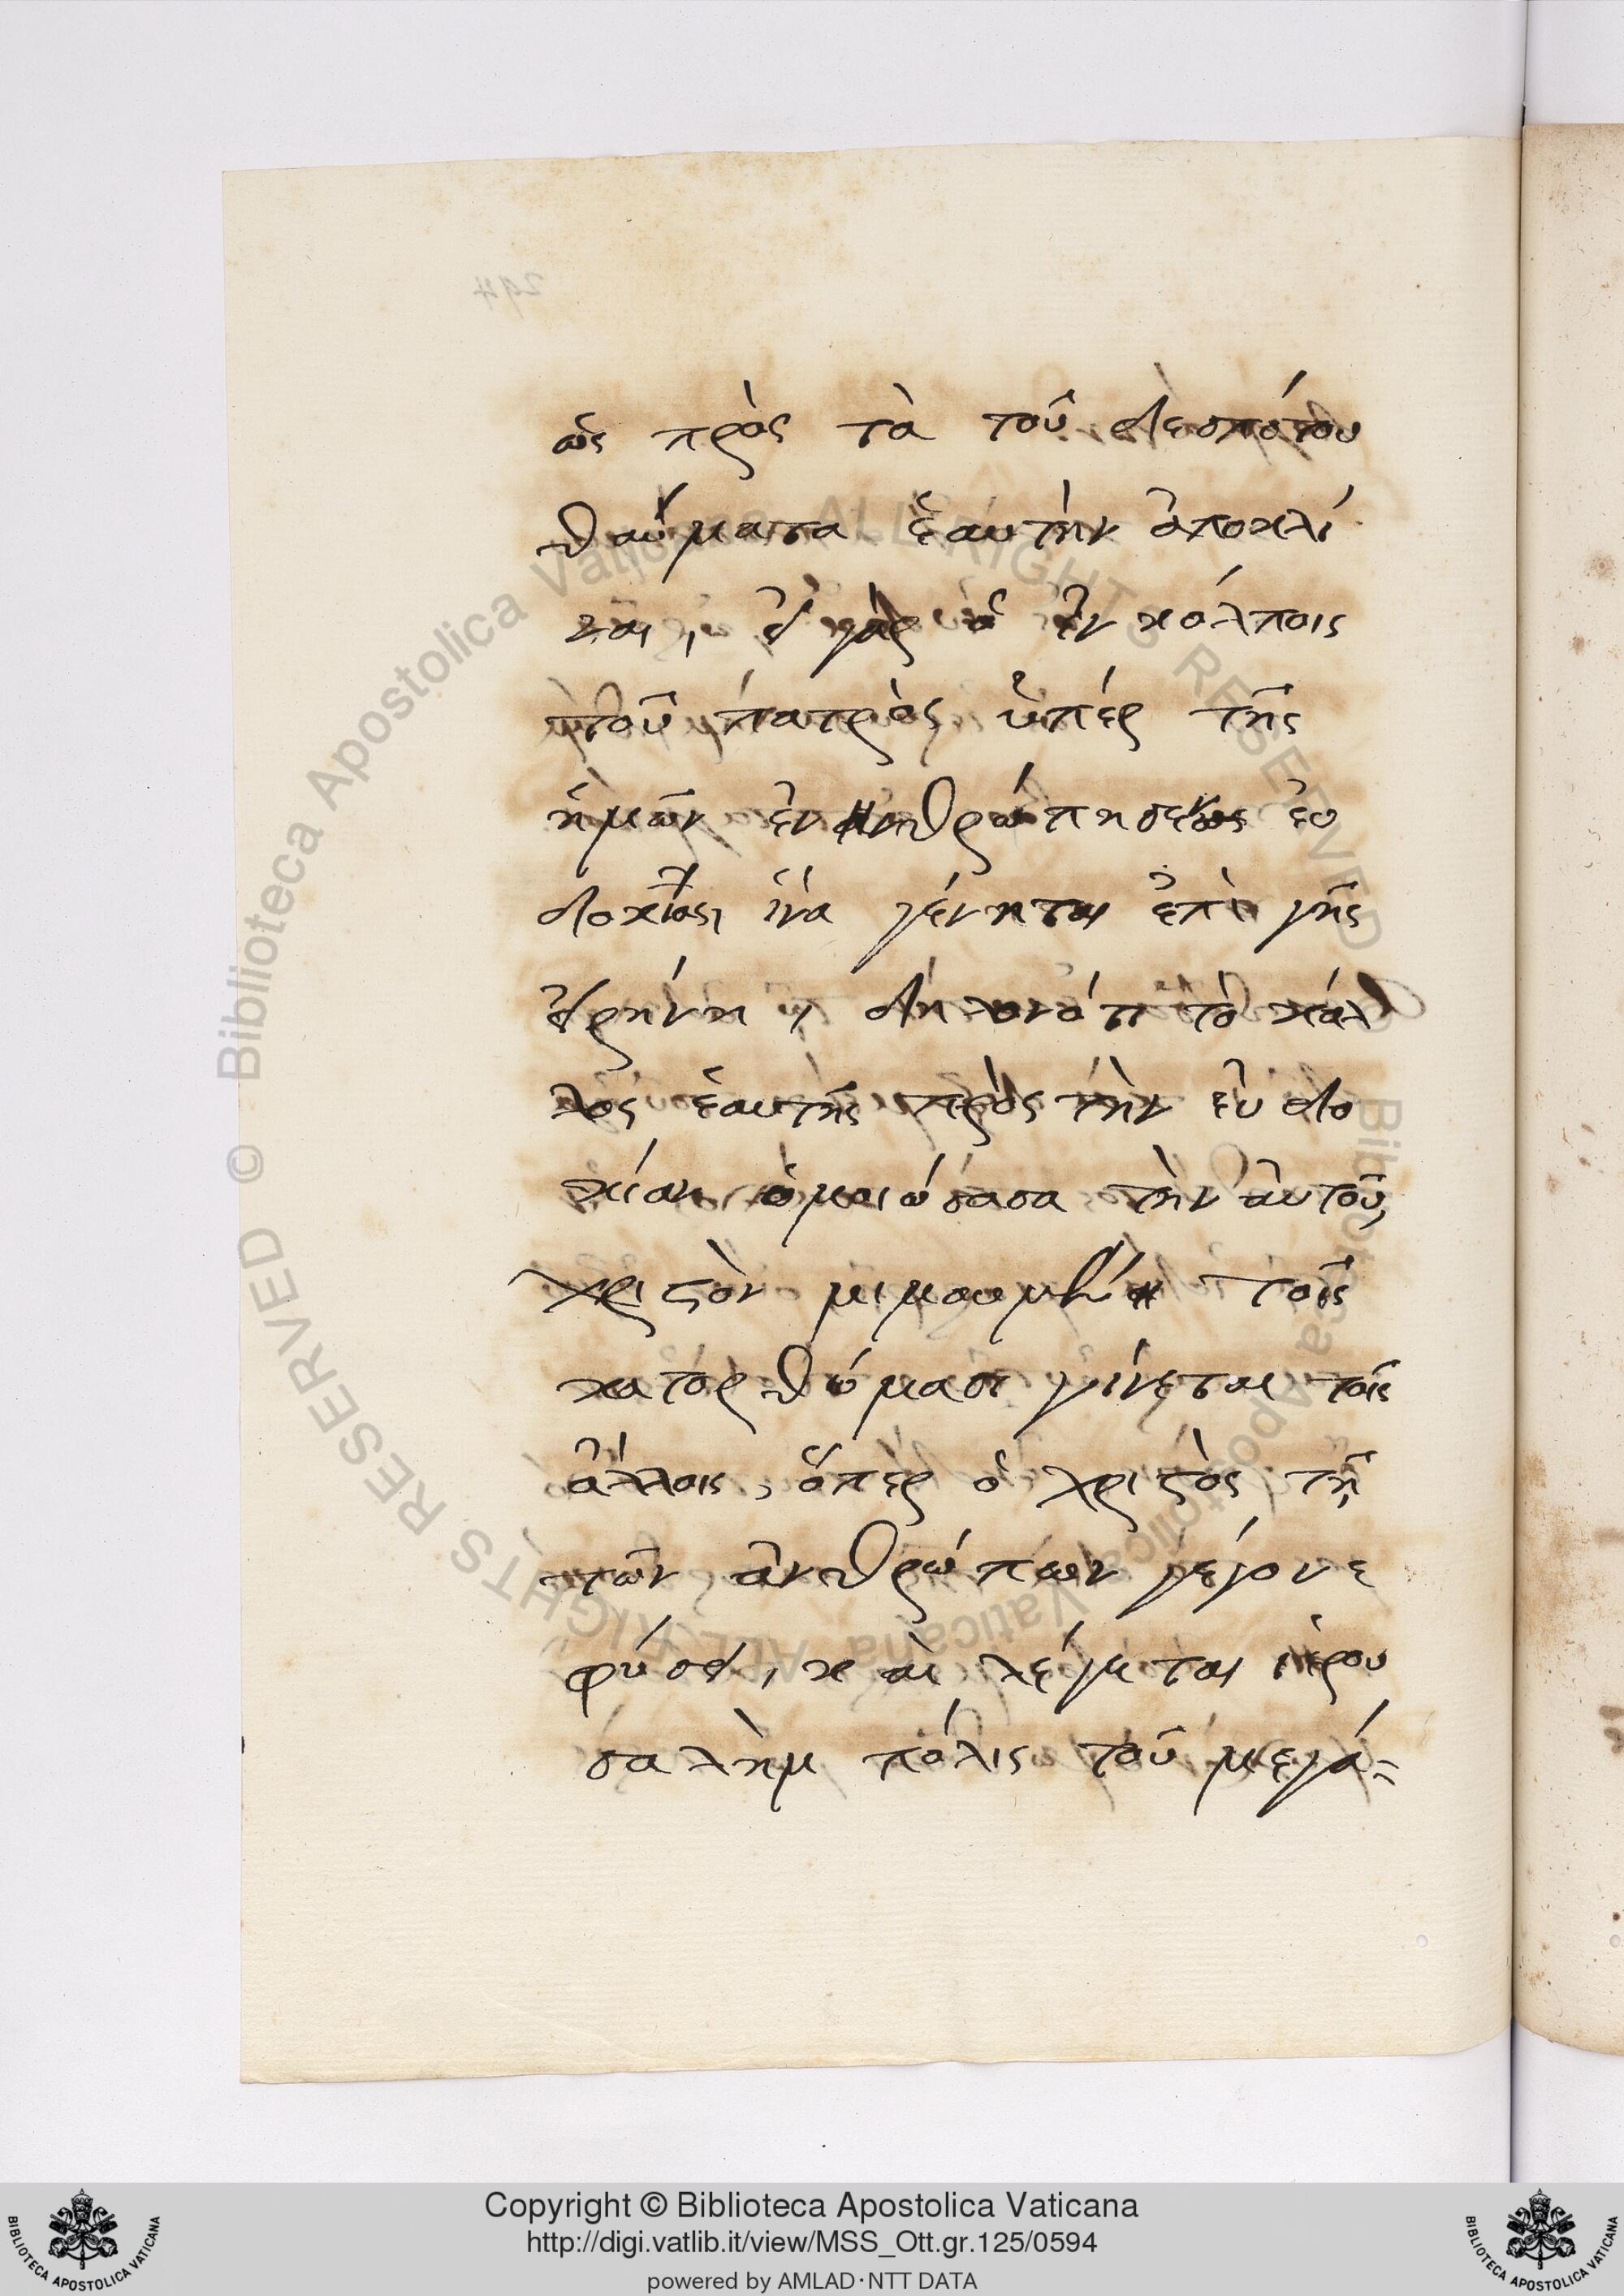 ὡς πρὸς τὰ τοῦ δεσπότου
θαύματα ἑαυτὴν ἀποκλί
ναι, εἰ γὰρ ὁ ἐν κόλποις
τοῦ πατρὸς ὑπὲρ τῆς
ἡμῶν ἐνανθρωπήσεως εὐ
δοκίας, ἵνα γένηται ἐπὶ γῆς
εἰρήνη, δηλονότι τὸ κάλ
λος ἑαυτῆς πρὸς τὴν εὐδο
κίαν ὁμοιώσασα τὴν αὐτοῦ,
χριστὸν μιμουμένη τοῖς
κατορθώμασι γίνεται τοῖς
ἄλλοις, ὅπερ ὁ χριστὸς τῇ
τῶν ἀνθρώπων γέγονε
φύσει, καὶ λέγεται ἱερου
σαλὴμ πόλις τοῦ μεγά=
294
© Biblioteca Apostolica Vaticana ALL RIGHTS RESERVED
Biblioteca Apostolica Vaticana ALL RIGHTS RESERVED
Copyright © Biblioteca Apostolica Vaticana
http://digi.vatlib.it/view/MSS_Ott.gr.125/0594
powered by AMLAD·NTT DATA
BIBLIOTECA APOSTOLICA VATICANA
BIBLIOTECA APOSTOLICA VATICANA